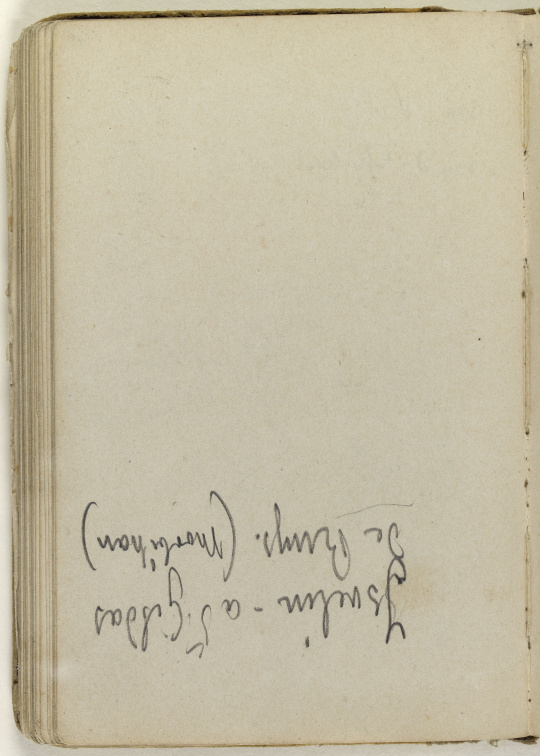 Iselin - a St Gildas
de Rhuys. (Morbihan)